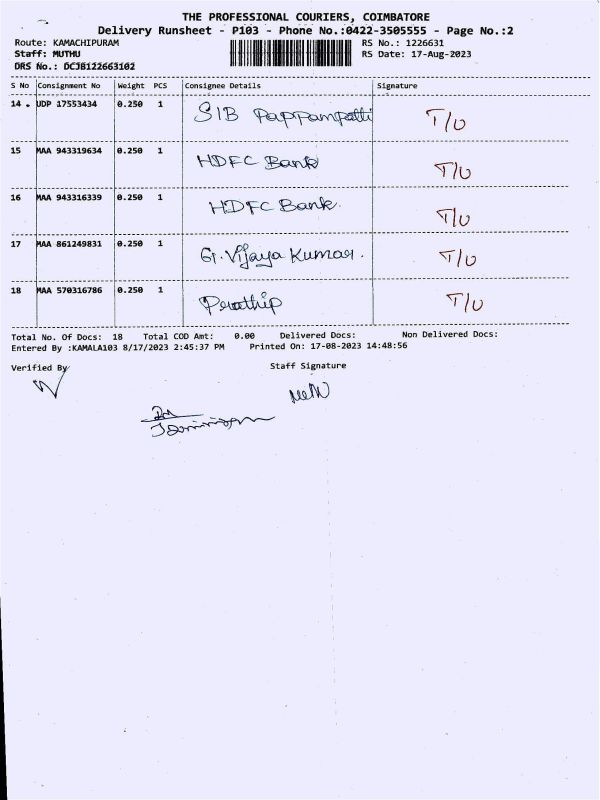 THE PROFESSIONAL COURIERS, COIMBATORE
Delivery Runsheet - P103 - Phone No.:0422-3505555 - Page No.:2
Route: KAMACHIPURAM RS No.: 1226631
Staff: MUTHU RS Date: 17-Aug-2023
DRS No.: DCJB122663102
S No Consignment No Weight PCS Consignee Details Signature
14 UDP 17553434 0.250 1 SIB Pappampatti T/U
15 MAA 943319634 0.250 1 HDFC Bank T/U
16 MAA 943316339 0.250 1 HDFC Bank. T/U
17 MAA 861249831 0.250 1 G. Vijaya Kumar. T/U
18 MAA 570316786 0.250 1 T/U
Total No. Of Docs: 18 Total COD Amt: 0.00 Delivered Docs: Non Delivered Docs:
Entered By :KAMALA103 8/17/2023 2:45:37 PM Printed On: 17-08-2023 14:48:56
Verified By Staff Signature